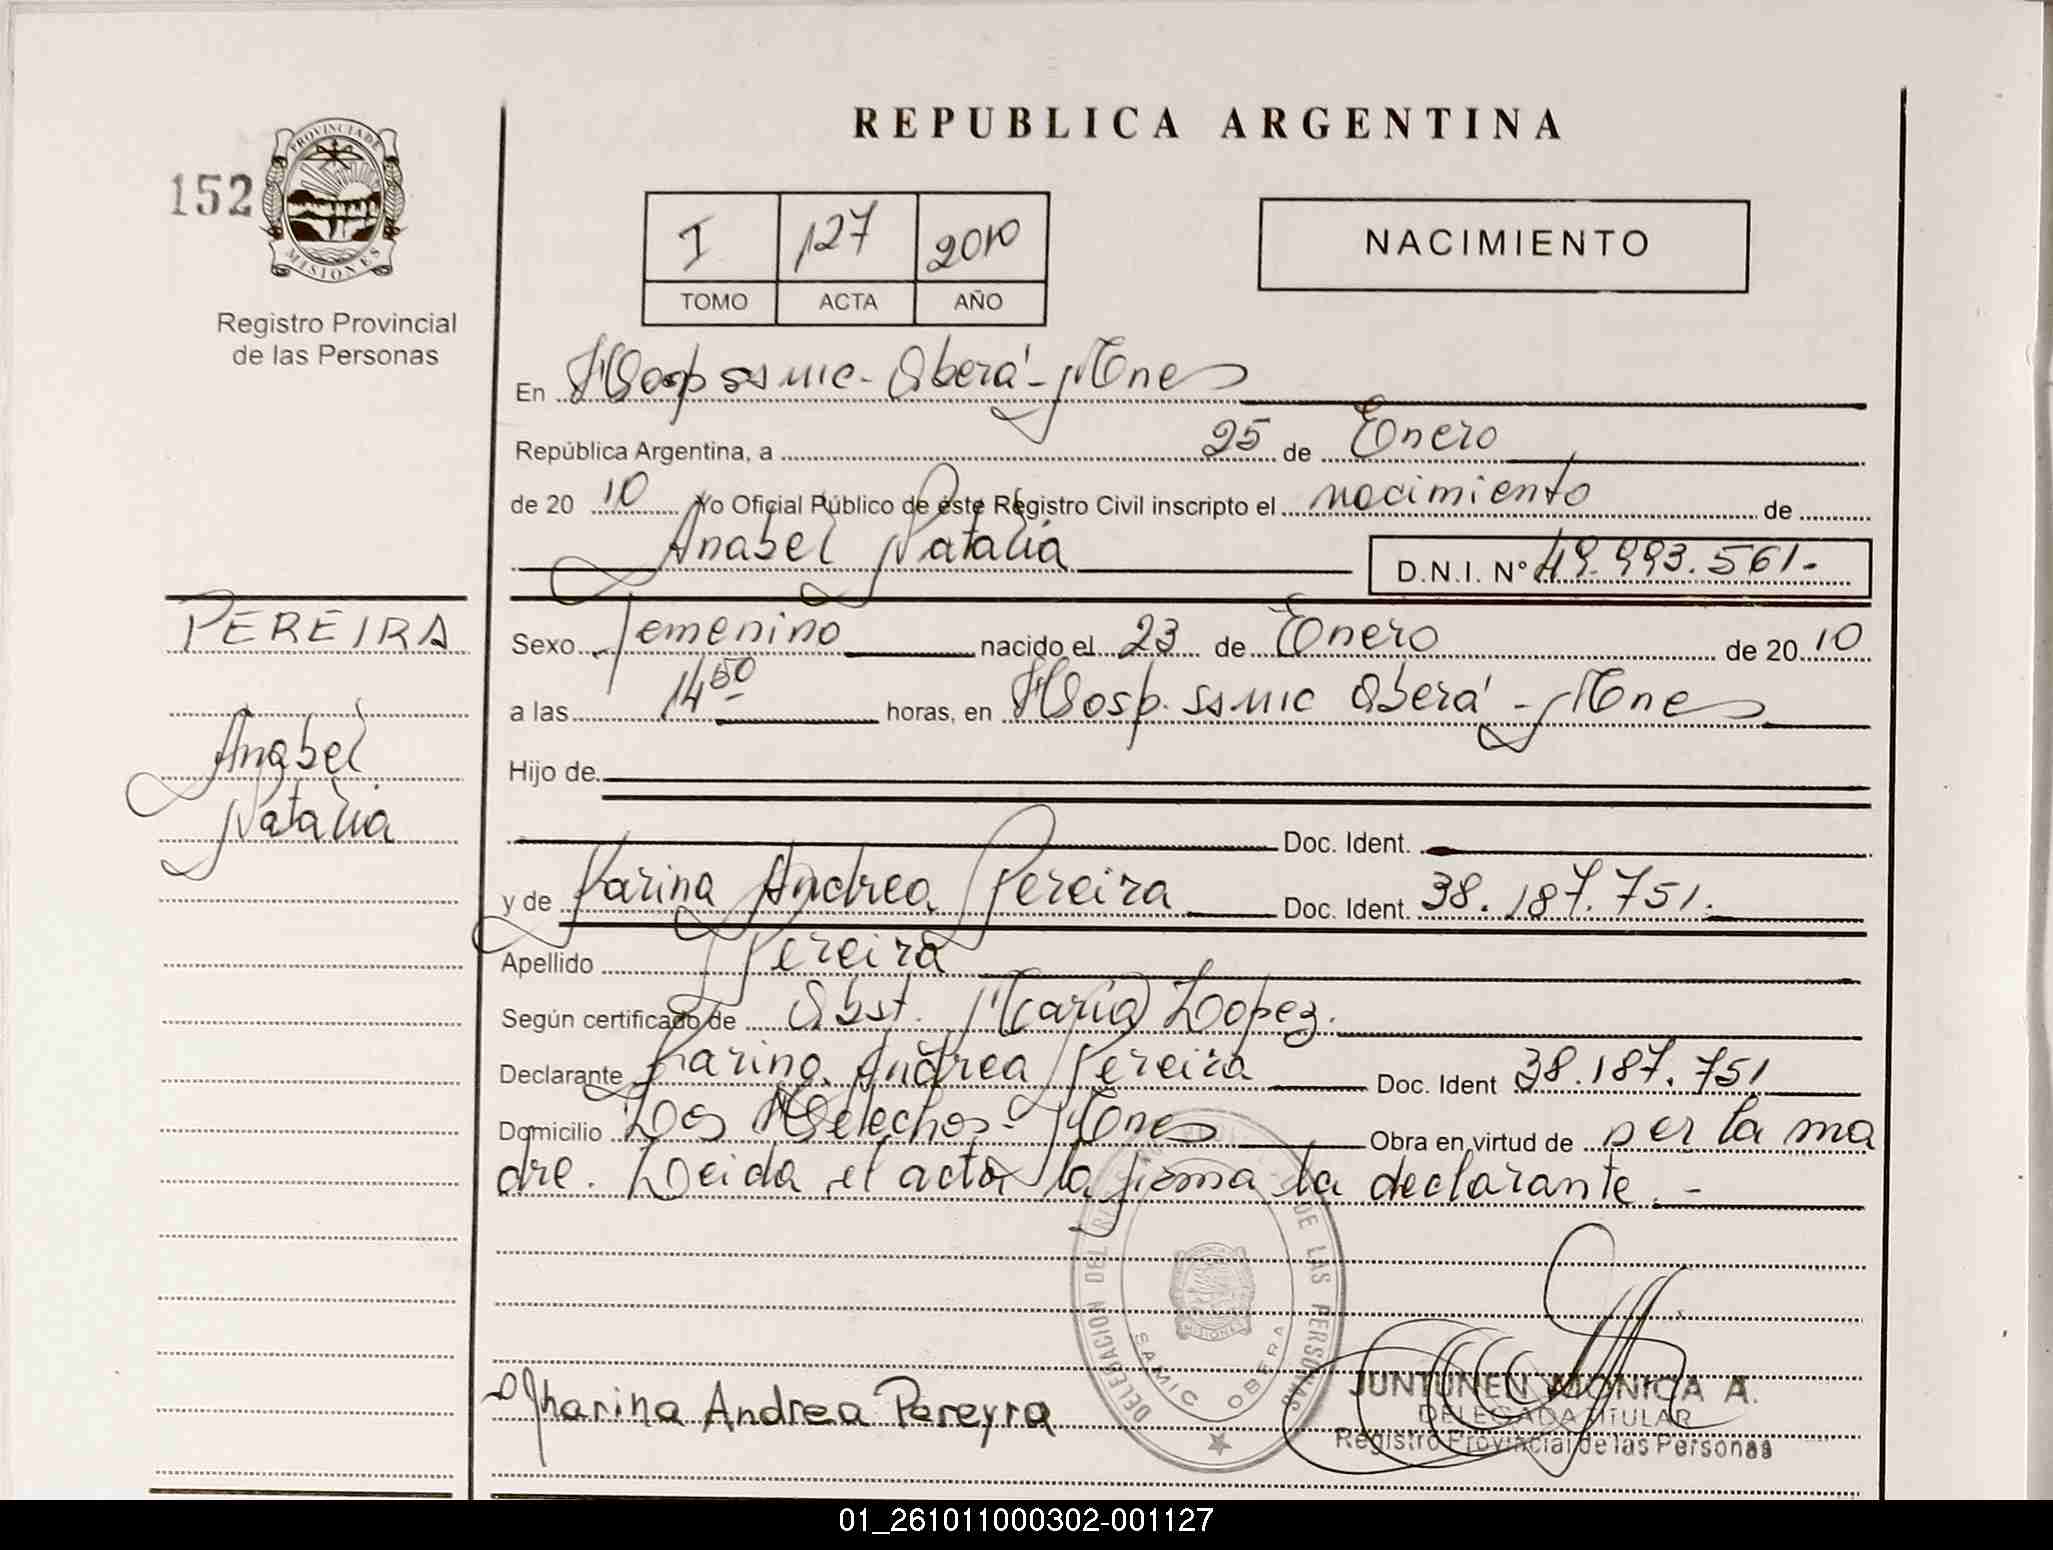 REPUBLICA ARGENTINA
152
PROVINCIA DE
MISIONES
Registro Provincial
de las Personas
I 127 2010
TOMO ACTA AÑO
NACIMIENTO
En Hosp. SAMIC - Oberá - Mnes
República Argentina, a 25 de Enero
de 20 10 Yo Oficial Público de éste Registro Civil inscripto el nacimiento de
Anabel Natalia D.N.I. Nº 49.993.561.-
PEREIRA
Anabel
Natalia
Sexo femenino nacido el 23 de Enero de 20 10
a las 14 50 horas, en Hosp. SAMIC Oberá - Mnes
Hijo de
Doc. Ident.
y de Karina Andrea Pereira Doc. Ident. 38.187.751.
Apellido Pereira
Según certificado de Obst. Maria Lopez.
Declarante Karina Andrea Pereira Doc. Ident 38.187.751
Domicilio Los Helechos - Mnes Obra en virtud de ser la ma
dre. Leida el acta la firma la declarante.-
DELEGACION DEL DE LAS PERSONAS
SAMIC OBERA
MISIONES
Jharina Andrea Pereyra
JUNTUNEN MONICA A.
DELEGADA TITULAR
Registro Provincial de las Personas
01_261011000302-001127